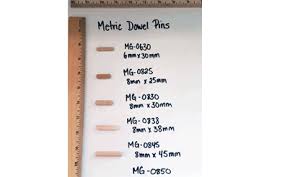 Metric Dowel Pins
MG-0630
6mm x 30mm
MG-0825
8mm x 25mm
MG-0830
8mm x 30mm
MG-0838
8mm x 38mm
MG-0845
8mm x 45mm
MG-0850